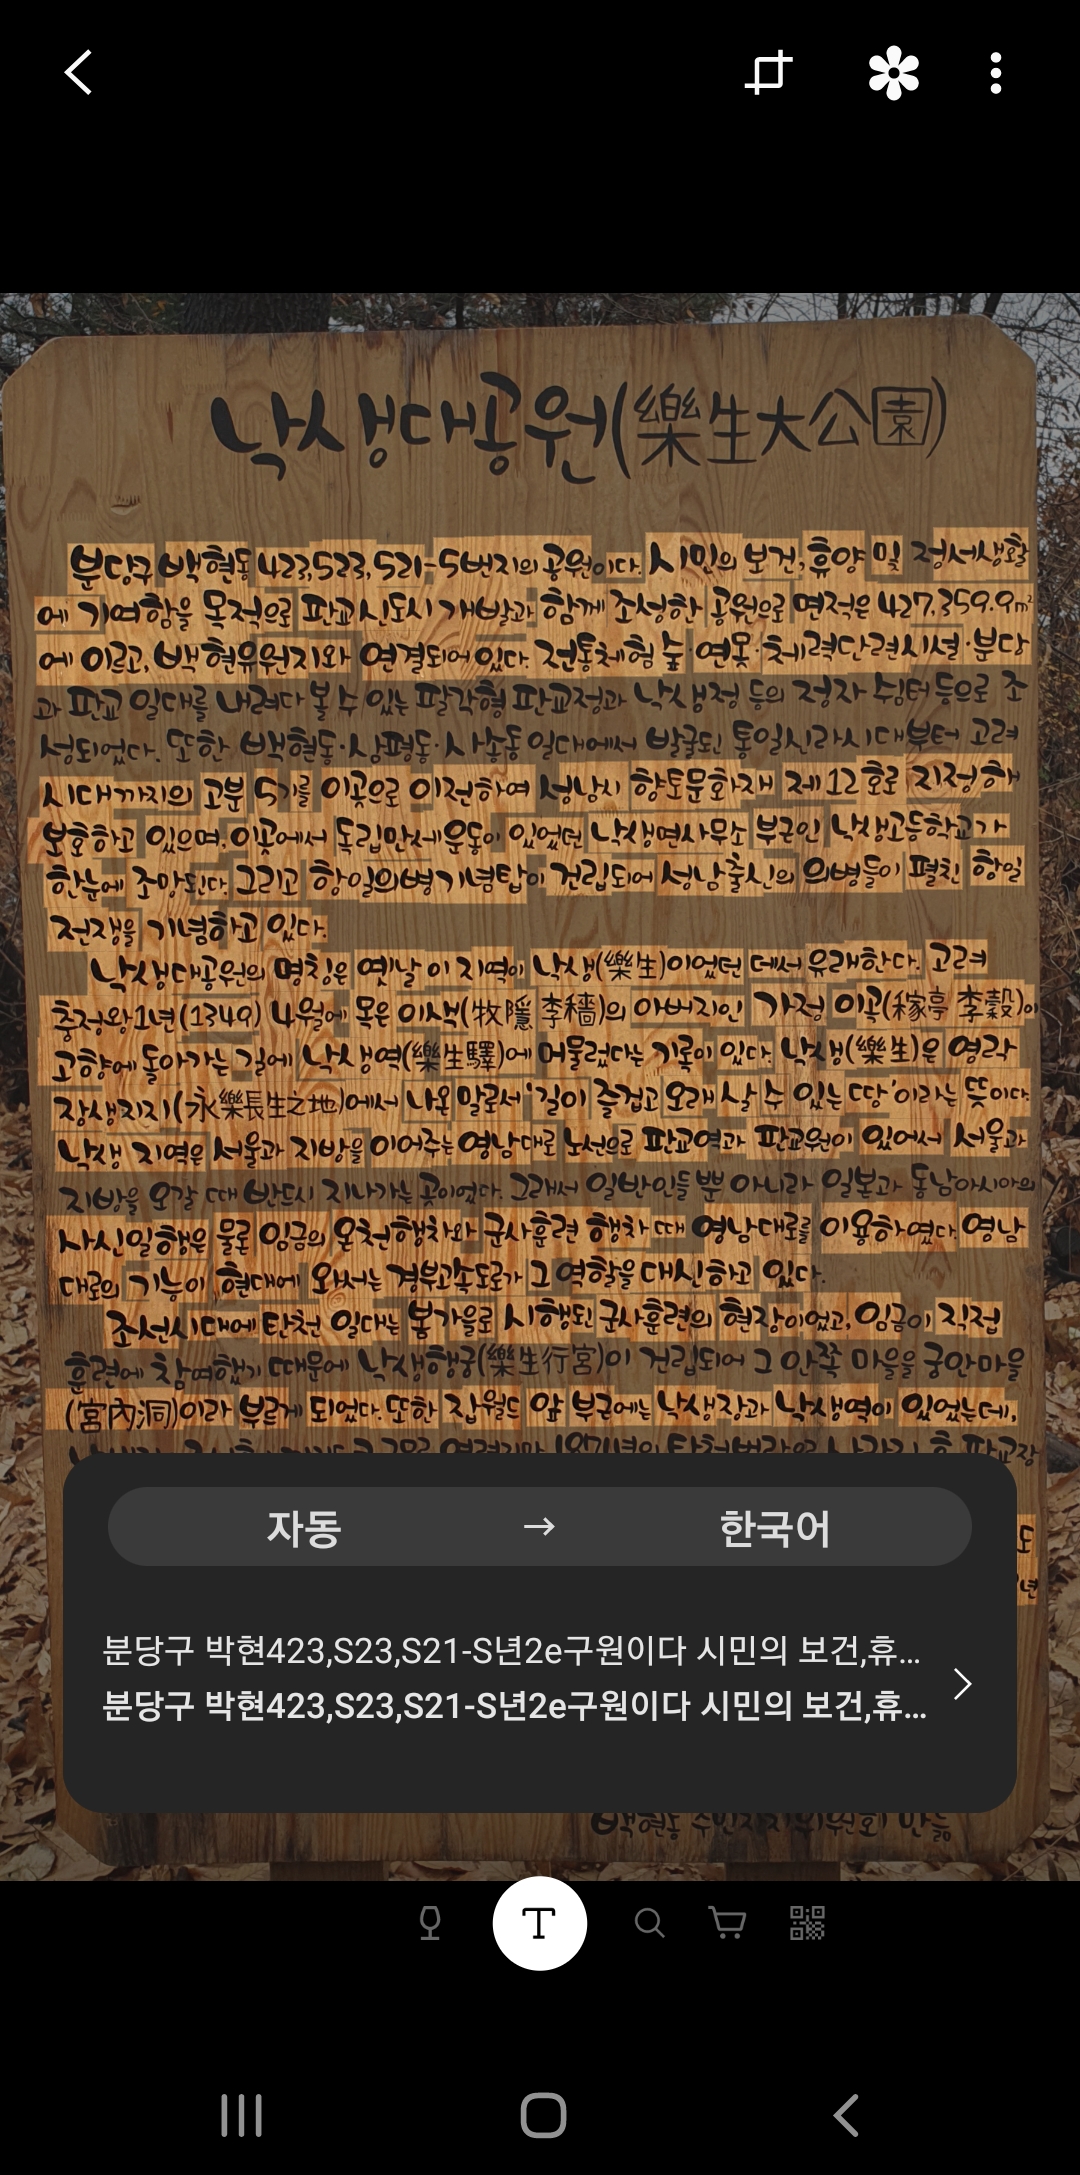 낙생대공원(樂生大公園)
분당구 백현동 423,523,521-5번지의 공원이다. 시민의 보건,휴양 및 정서생활
에 기여함을 목적으로 판교신도시 개발과 함께 조성한 공원으로 면적은 427,359.9㎡
에 이르고, 백현유원지와 연결되어 있다. 전통체험 숲·연못·체력단련시설·분당
과 판교 일대를 내려다 볼 수 있는 팔각형 판교정과 낙생정 등의 정자 쉼터 등으로 조
성되었다. 또한 백현동·삼평동·사송동 일대에서 발굴된 통일신라시대부터 고려
시대까지의 고분 5기를 이곳으로 이전하여 성남시 향토문화재 제12호로 지정해
보호하고 있으며, 이곳에서 독립만세운동이 있었던 낙생면사무소 부근인 낙생고등학교가
한눈에 조망된다. 그리고 항일의병기념탑이 건립되어 성남출신의 의병들이 펼친 항일
전쟁을 기념하고 있다.
낙생대공원의 명칭은 옛날 이 지역이 낙생(樂生)이었던 데서 유래한다. 고려
충정왕1년(1349) 4월에 목은 이색(牧隱 李穡)의 아버지인 가정 이곡(稼亭 李穀)이
고향에 돌아가는 길에 낙생역(樂生驛)에 머물렀다는 기록이 있다. 낙생(樂生)은 영락
장생지지(永樂長生之地)에서 나온 말로서 '길이 즐겁고 오래 살 수 있는 땅'이라는 뜻이다.
낙생 지역은 서울과 지방을 이어주는 영남대로 노선으로 판교역과 판교원이 있어서 서울과
지방을 오갈 때 반드시 지나가는 곳이었다. 그래서 일반인들 뿐 아니라 일본과 동남아시아의
사신일행은 물론 임금의 온천행차와 군사훈련 행차 때 영남대로를 이용하였다. 영남
대로의 기능이 현대에 와서는 경부고속도로가 그 역할을 대신하고 있다.
조선시대에 탄천 일대는 봄가을로 시행된 군사훈련의 현장이었고, 임금이 직접
훈련에 참여했기 때문에 낙생행궁(樂生行宮)이 건립되어 그 안쪽 마을을 궁안마을
(宮內洞)이라 부르게 되었다. 또한 잡월드 앞 부근에는 낙생장과 낙생역이 있었는데,
도
년
자동 → 한국어
분당구 박현423,S23,S21-S년2e구원이다 시민의 보건,휴...
분당구 박현423,S23,S21-S년2e구원이다 시민의 보건,휴...
백현동 주민자치위원회 만듦
T